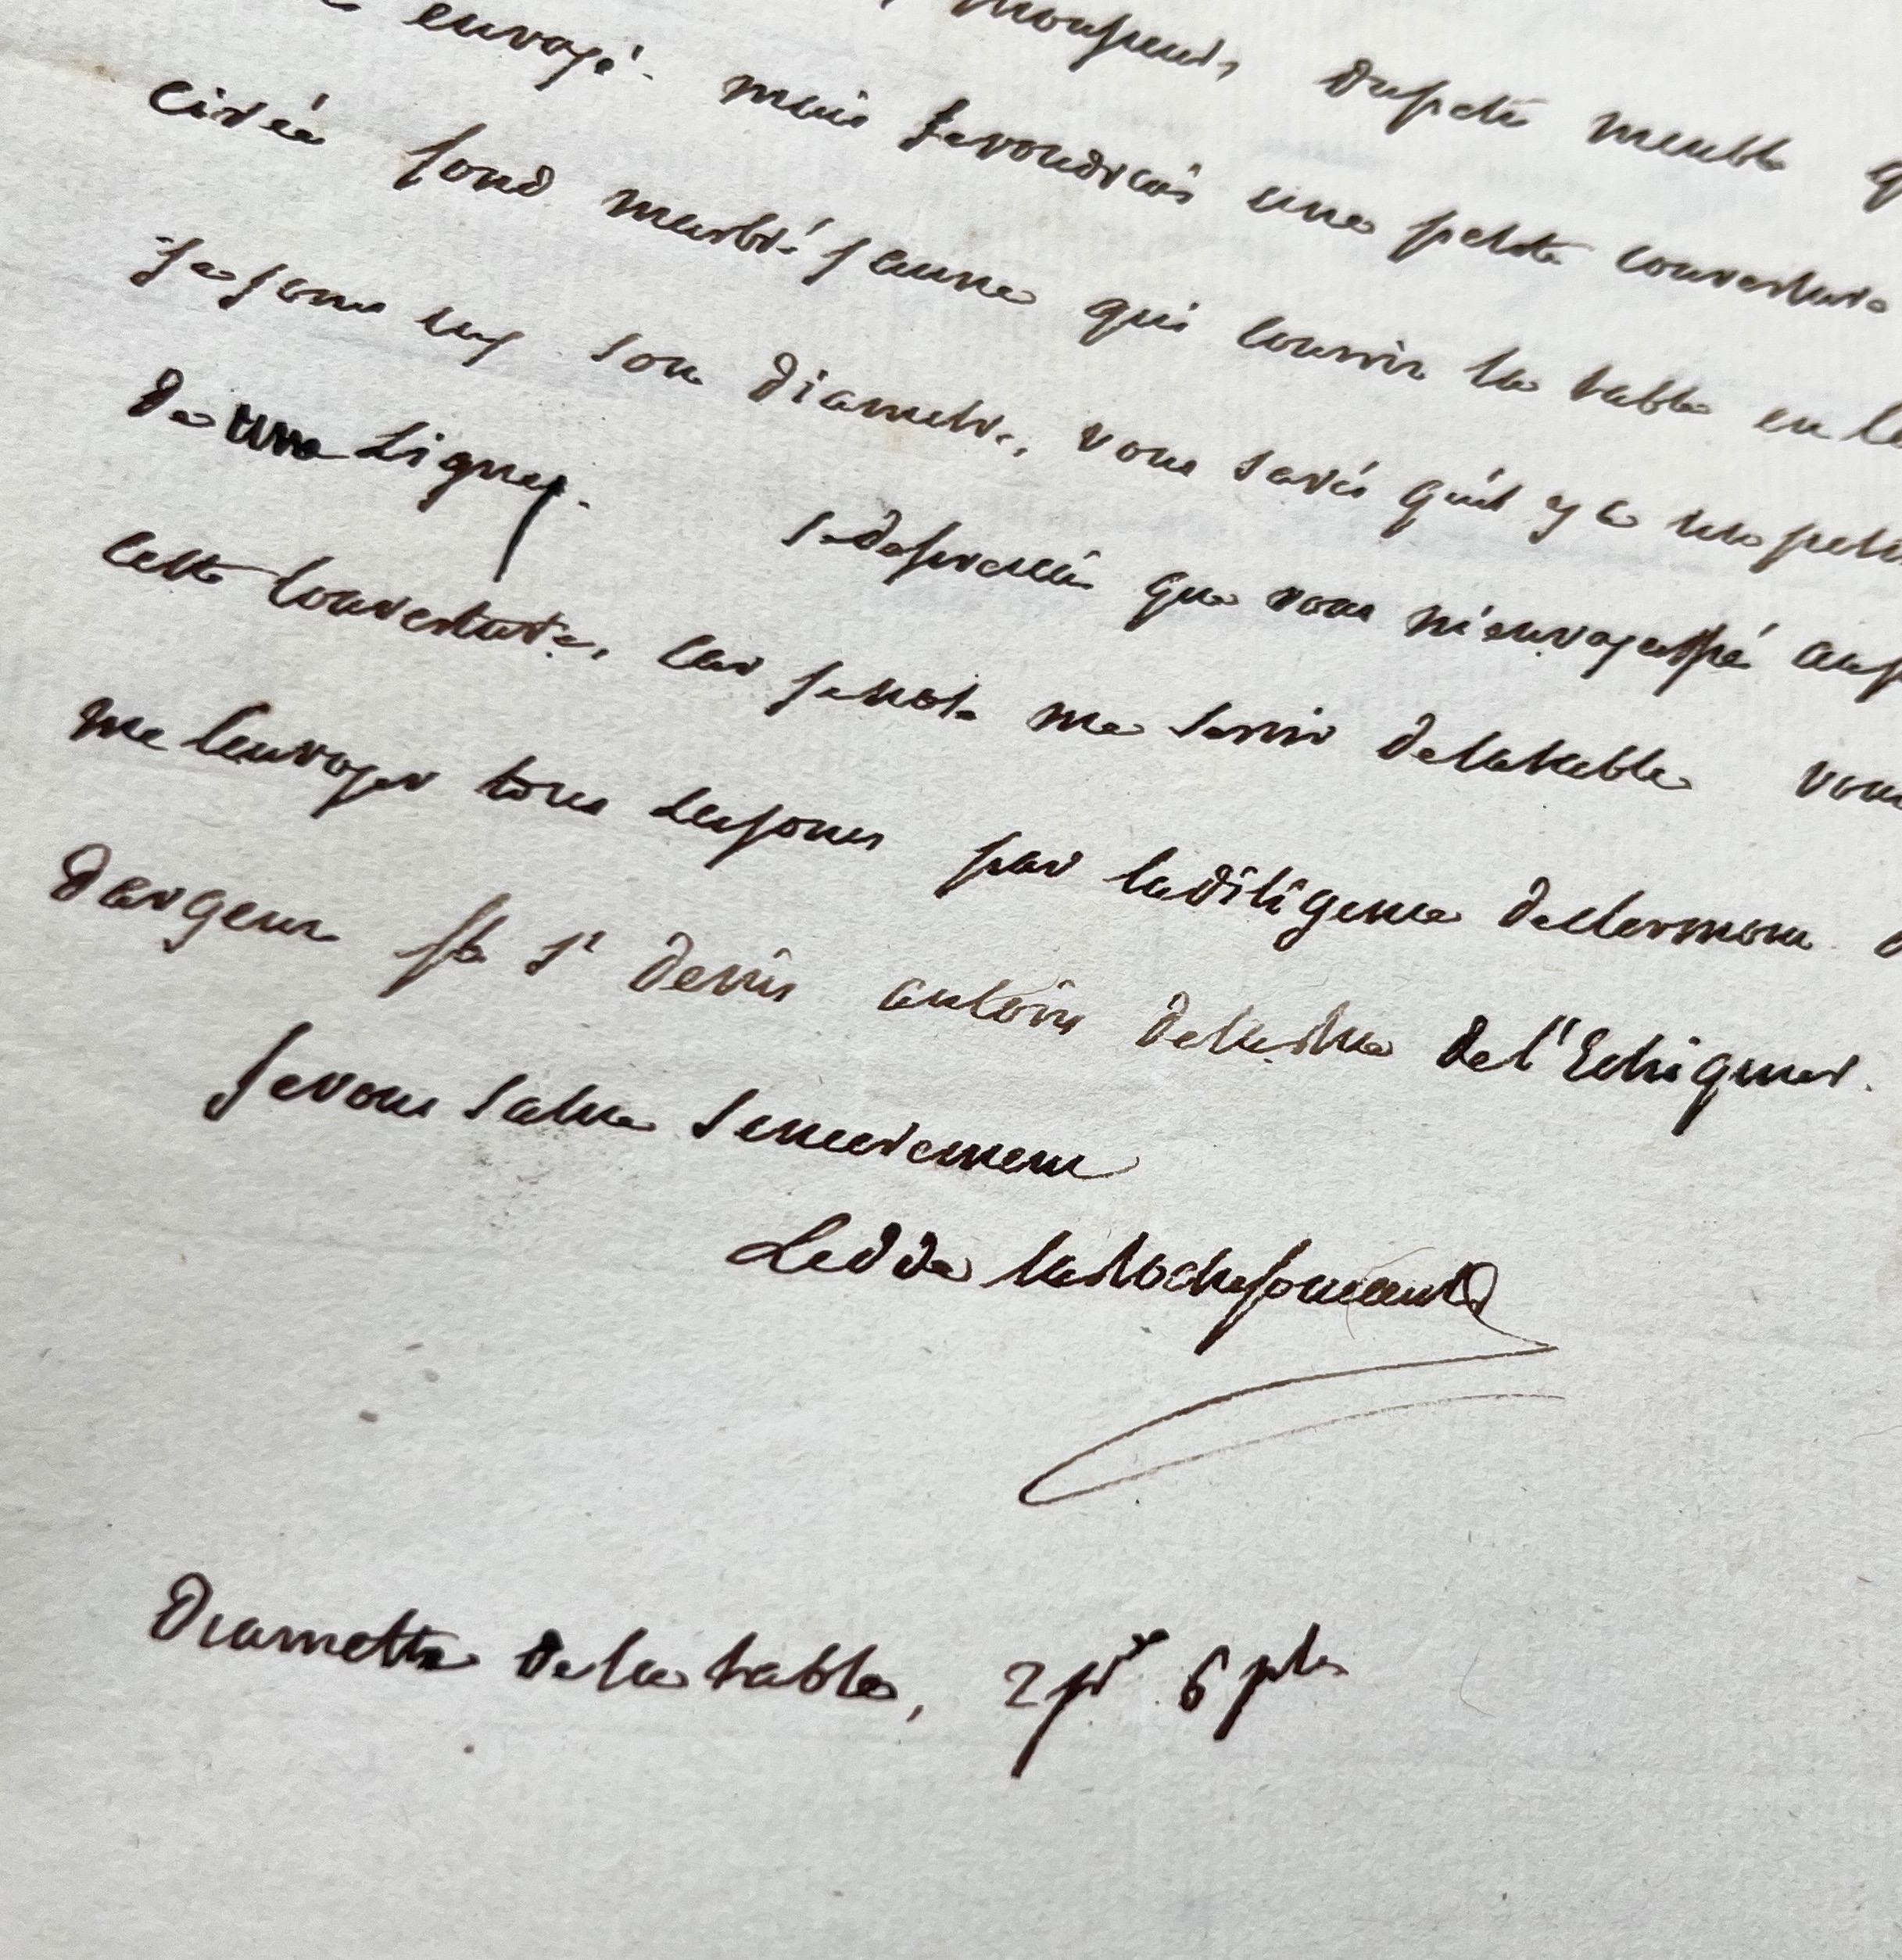 Monsieur, du petit meuble
envoyé. mais je voudrais une petite couverture
cirée fond marbré jaune qui couvrir la table en
son diametre, vous savés qu'il y a une petite
de une Ligne. je desirerais que vous m'envoyassié
cette couverture, car je nose me servir de la table vous
me l'envoyer tous les jours par la diligence de clermont
d'argent fb. St denis au coin de la rue de l'Echiquier.
je vous salue sincerement
Led de la Rochefoucauld
Diamettre de la table, 2 pds 6 pces